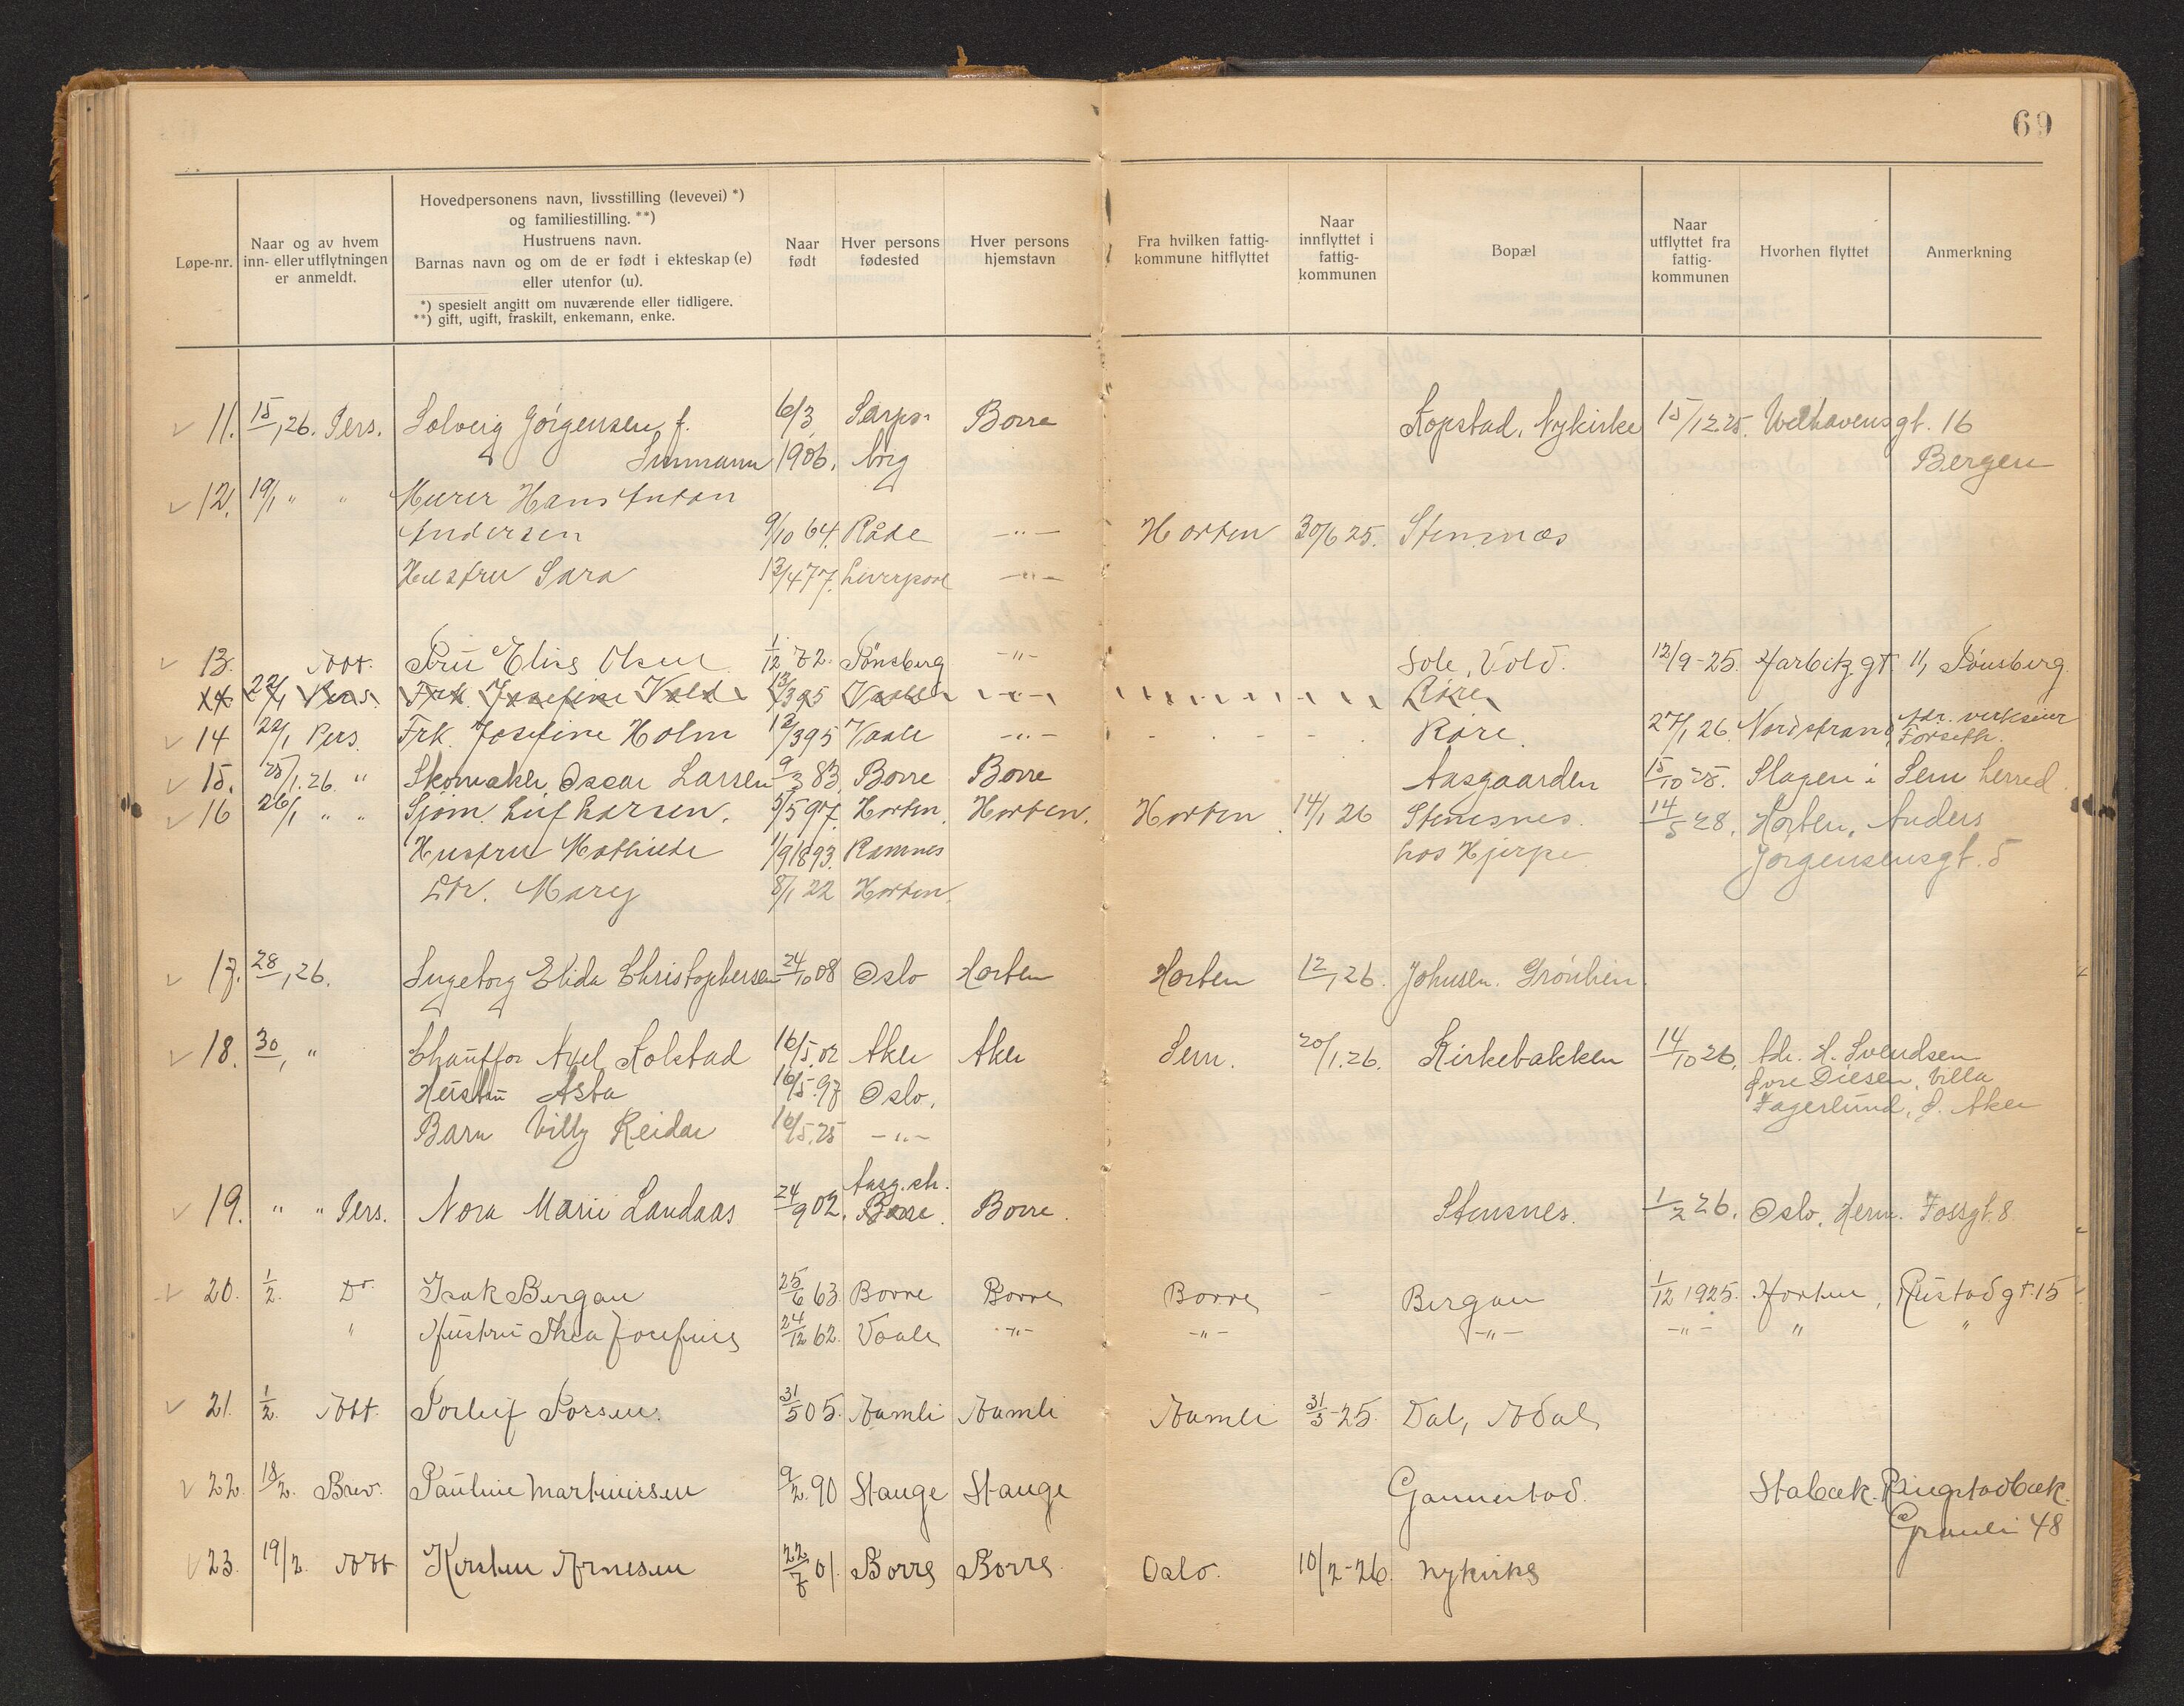 69
Løpe-nr.
Naar og av hvem
inn- eller utflytningen
er anmeldt.
Hovedpersonens navn, livsstilling (levevei) *)
og familiestilling. **)
Hustruens navn.
Barnas navn og om de er født i ekteskap (e)
eller utenfor (u).
*) spesielt angitt om nuværende eller tidligere.
**) gift, ugift, fraskilt, enkemann, enke.
Naar
født
Hver persons
fødested
Hver persons
hjemstavn
Fra hvilken fattig-
kommune hitflyttet
Naar
innflyttet i
fattig-
kommunen
Bopæl
Naar
utflyttet fra
fattig-
kommunen
Hvorhen flyttet
Anmerkning
11. 15/1 26. Pers. Solveig Jørgensen f. 6/3 Sarps- Borre Kopstad, Nykirke 15/12.25. Welhavensgt. 16
1906. borg Bergen
12. 19/1 " " Murer Hans Anton
Andersen 9/10 64. Råde -"- Horten 30/6 25. Stensnæs
Hustru Sara 13/4 77. Liverpool -"-
13. Att. Fru Elise Olsen 1/12 72. Tønsberg -"- Sole, Vold. 12/9-25. Farbitz gt 11, Tønsberg.
22/1 Pers. Frk. Josefine 13/3 95 Vaale -"- Røre
14 22/1 Pers. Frk. Josefine Holm 13/3 95 Vaale -"- Røre. 27/1 26. Nordstrand, Adr. verkseier
Forseth.
15. 25/1.26. " Skomaker Oscar Larsen 9/3 83 Borre Borre Aasgaarden 15/10 25. Slagen i Sem herred.
16 26/1 " " Sjøm. Leif Larsen. 5/5 97. Horten. Horten. Horten. 14/1 26 Stensnes. 14/5 28. Horten, Anders
Hustru Mathilde 1/9 1893. Ramnes hos Hjerpe Jørgensensgt. 5
Dtr. Mary 8/1 22 Horten.
17. 28/1 26. Ingeborg Elida Christophersen 24/10 08 Oslo Horten Horten 12/1 26. Johnsen. Grønlien.
18. 30/1 " Chauffør Axel Kolstad 16/5.02 Aker Aker Sem. 20/1.26. Kirkebakken 14/10 26. Adr. H. Svendsen
Hustru Asta 16/5.97 Oslo. Øvre Diesen, Villa
Barn Villy Reidar 16/5.25 -"- Fagerlund, Ø. Aker
Aasg.str.
19. " " Pers. Nora Marie Landaas 24/9 02. Borre. Borre. Stensnes. 1/2 26. Oslo, Herm. Fossgt. 8.
20. 1/2. Do. Isak Bergan 25/6 63 Borre Borre Borre - Bergan 1/12 1925. Horten, Rustad gt. 15
" Hustru Thea Josefine 24/12 62. Vaale -"- -"- -"- -"- " "
21. 1/2. Att. Torleif Torsen. 31/5 05. Aamli Aamli Aamli 31/3-25. Dal, Adal
22. 18/2. Brev. Pauline Martinissen 9/2.90 Stange Stange Gannestad. Stabæk. Ringstadbæk.
Granli 48
23. 19/2. Att Kirsten Arnesen 22/7 01. Borre Borre Oslo. 10/2-26. Nykirke